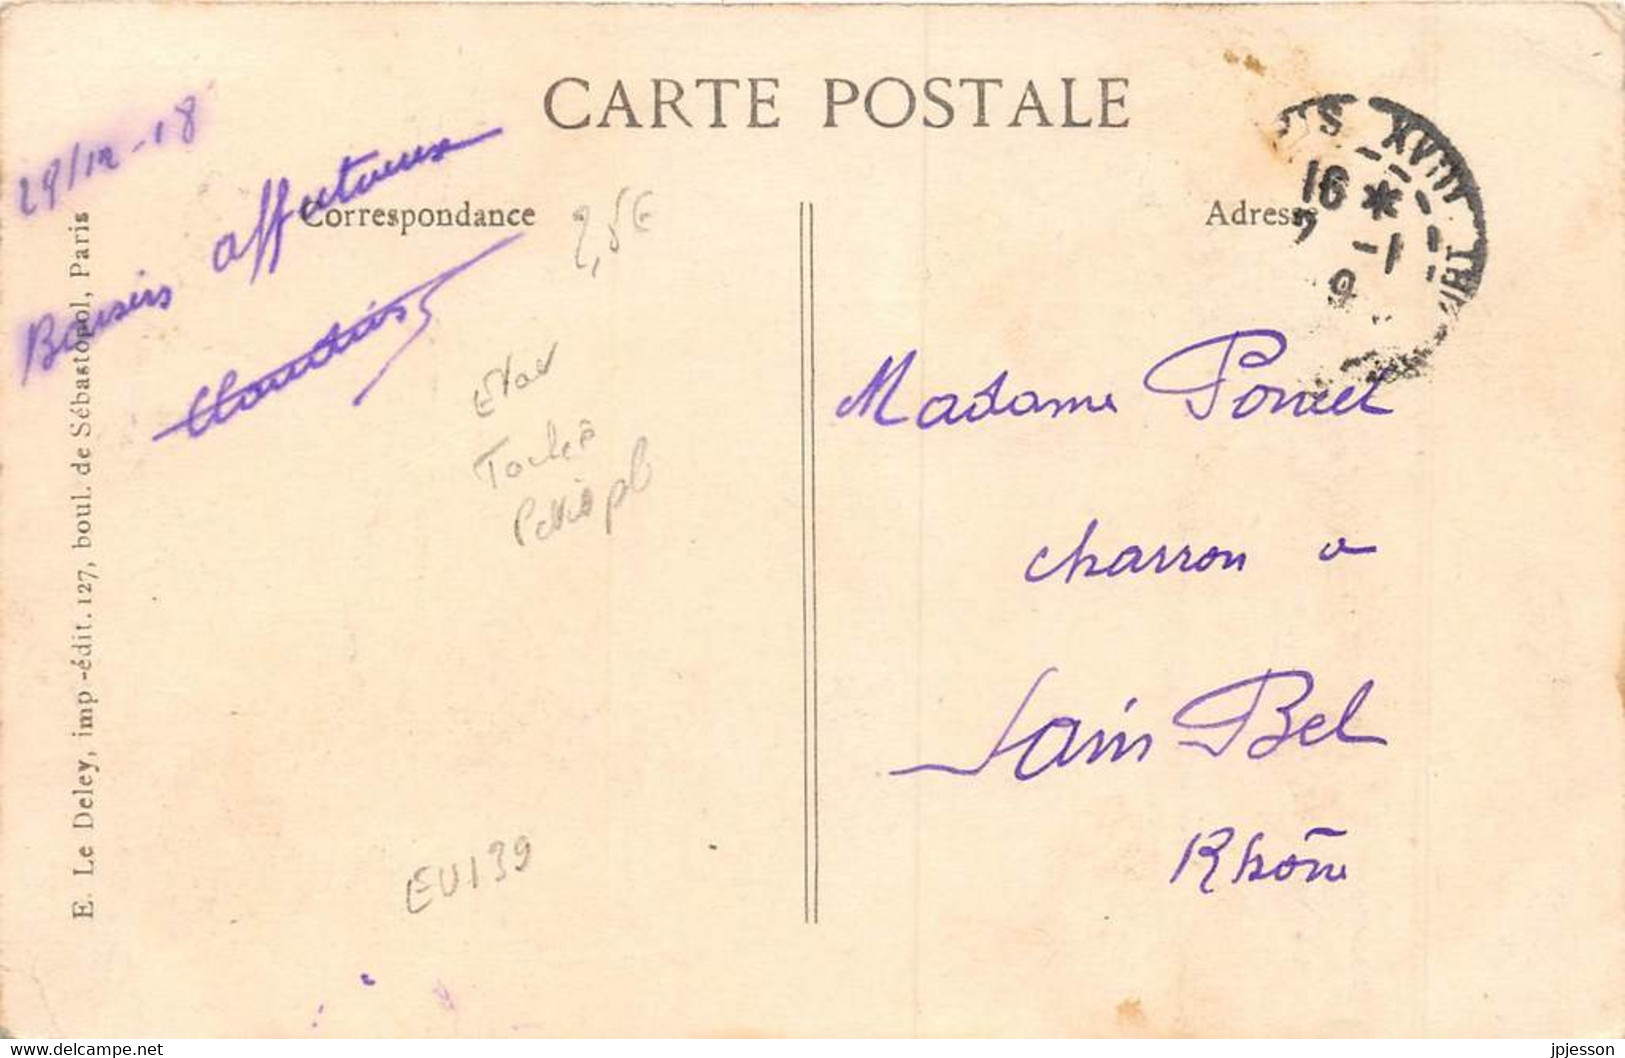 CARTE POSTALE
29/12-18
Correspondance
Adresse
Baisers affectueux
2,5€
16 *
7 -1
9
Etat
Madame Poncet
charron a
Sain Bel
Rhône
EU139
E. Le Deley, imp.-édit. 127, boul. de Sébastopol, Paris
www.delcampe.net
jpjesson